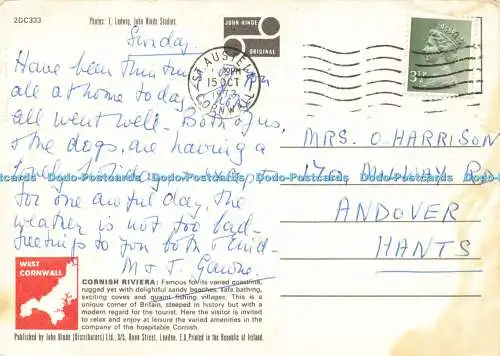 2DC333
Photos: E. Ludwig, John Hinde Studios.
JOHN HINDE
ORIGINAL
Sunday.
Have been thinking
all at home today
all went well. Both of us,
& the dogs, are having a
lovely time,
for one awful day, the
weather is not too bad-
Greetings to you both & Enid-
M & J.
ST AUSTELL
15 OCT
CORNWALL
3½P
MRS. O. HARRISON
170,
ANDOVER
HANTS
Dodo-Postcards Dodo-Postcards Dodo-Postcards Dodo-Postcards
WEST
CORNWALL
CORNISH RIVIERA: Famous for its varied coastline,
rugged yet with delightful sandy beaches, safe bathing,
exciting coves and quaint fishing villages. This is a
unique corner of Britain, steeped in history but with a
modern regard for the tourist. Here the visitor is invited
to relax and enjoy at leisure the varied amenities in the
company of the hospitable Cornish.
Published by John Hinde (Distributors) Ltd., Street, London, E.8. Printed in the Republic of Ireland.